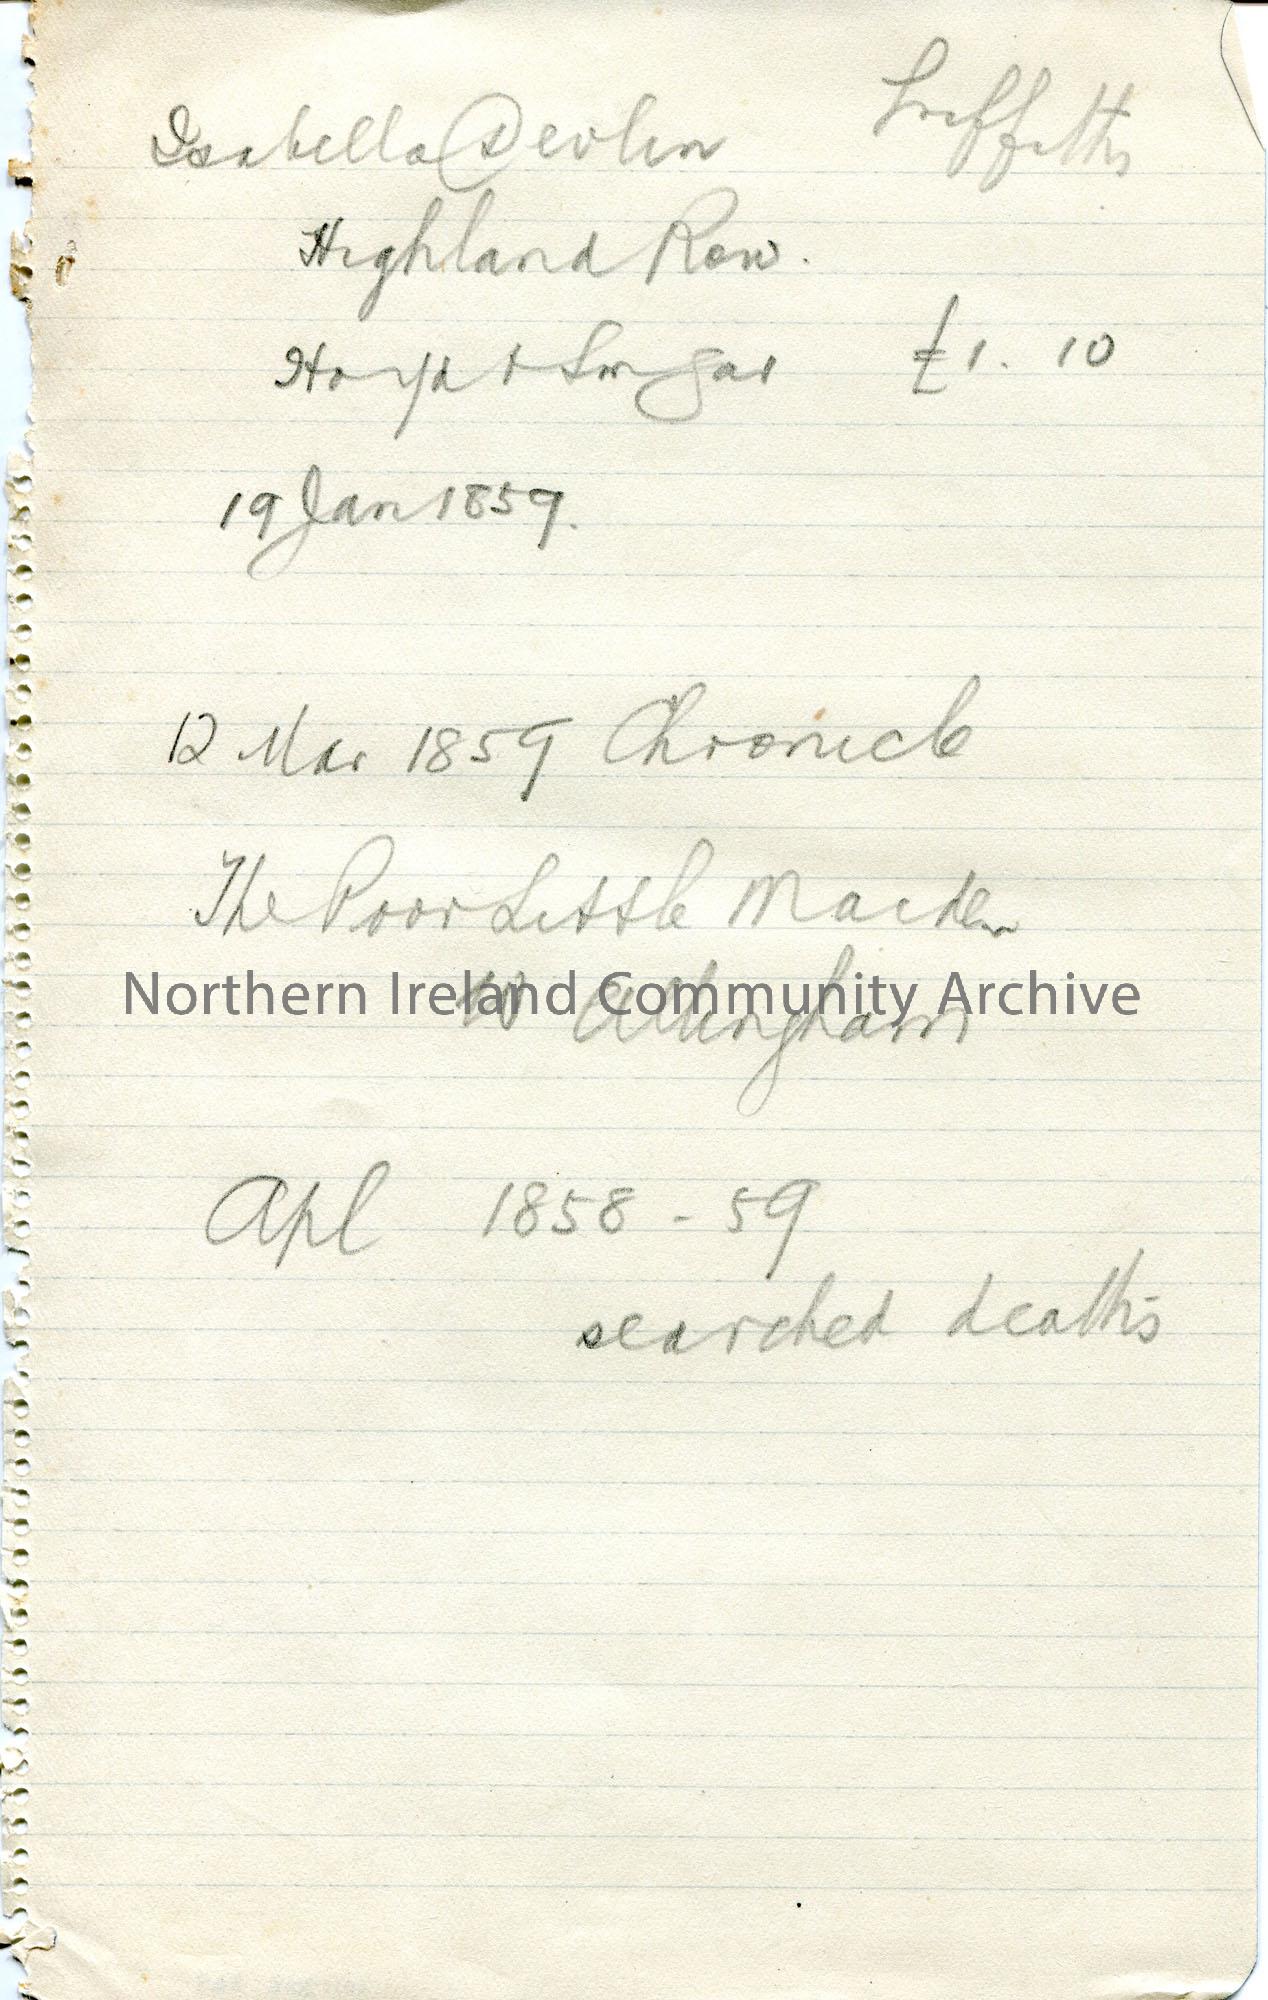 Isabella Devlin Griffiths
Highland Row.
Ho yd & Sm gar £1. 10
19 Jan 1859.
12 Mar 1859 Chronicle
The Poor Little Maiden
W Allingham
Northern Ireland Community Archive
Apl 1858 - 59
searched deaths